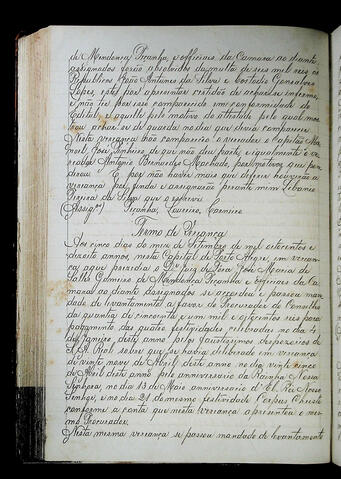 de Mendonça Peçanha, e officiais da Camara ao diante
assignados forão absolvidos da multa de seis mil reis os
Republicos João Antunes da Silva e Custodio Gonçalves
Lopes, este por apresentar certidão de achar-se enfermo,
e não ter por isso comparecido em conformidade do
Edital, e aquelle pelo motivo do attestado pelo qual mos-
trou achar-se de guarda no dia que devia comparecer.
Nesta vereança não compareceo o vereador o Capitão Ma-
noel José que não deu parte, e igualmente o ve-
reador Antonio Bernardes Machado, por motivos que pon-
derou. E por não haver mais que deferir houverão a
vereança por finda e assignarão perante mim Libanio
Pereira da Silva que o escrevi.
(Assig.) Peçanha, Loureiro, Carneiro
Termo de Vereança
Aos cinco dias do mez de Setembro de mil oitocentos e
dizoito annos, nesta Capital de Porto Alegre, em verean-
ça aque presidia o D.or Juiz de Fóra José Maria de
Salles Gameiro de Mendonça Peçanha e officiais da Ca-
mara ao diante assignados se procedeu e passou man-
dado de levantamento a favor do Procurador do Conselho
da quantia de cincoenta e um mil e oitocentos reis para
pagamento das quatro festividades celebradas no dia 4
de Janeiro deste anno pelos faustissimos desposorios de
S. A. Real sobre que se havia deliberado em vereança
de vinte nove de Abril deste anno, no dia vinte cinco
de Abril deste anno pelo anniversario da Rainha Nossa
Senhora, no dia 13 de Maio anniversario d'El Rei Nosso
Senhor, e no dia 21 do mesmo festividade Corpus Christe
conforme a conta que nesta vereança apresentou o mes-
mo Procurador.
Nesta mesma vereança se passou mandado de levantamento